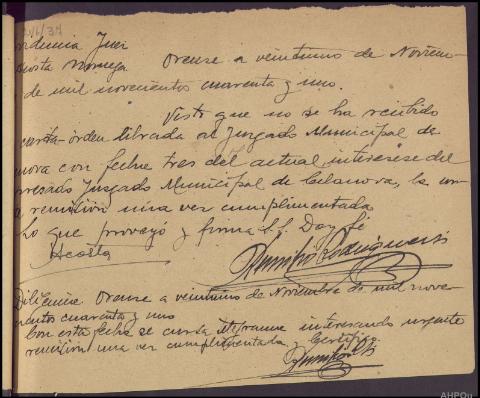 Juez
Acosta Noruega Orense a veintiuno de Noviem-
de mil novecientos cuarenta y uno.
Visto que no se ha recibido
carta-orden librada al Juzgado Municipal de
nova con fecha tres del actual interésese del
presado Juzgado Municipal de Celanova, la
remisión una vez cumplimentada
Lo que proveyó y firma S.S. Doy fé
Acosta
Diligencia Orense a veintiuno de Noviembre de mil nove-
cientos cuarenta y uno
Con esta fecha se cursa telegrama interesando urgente
remisión una vez cumplimentada, Certifico.
AHPOu